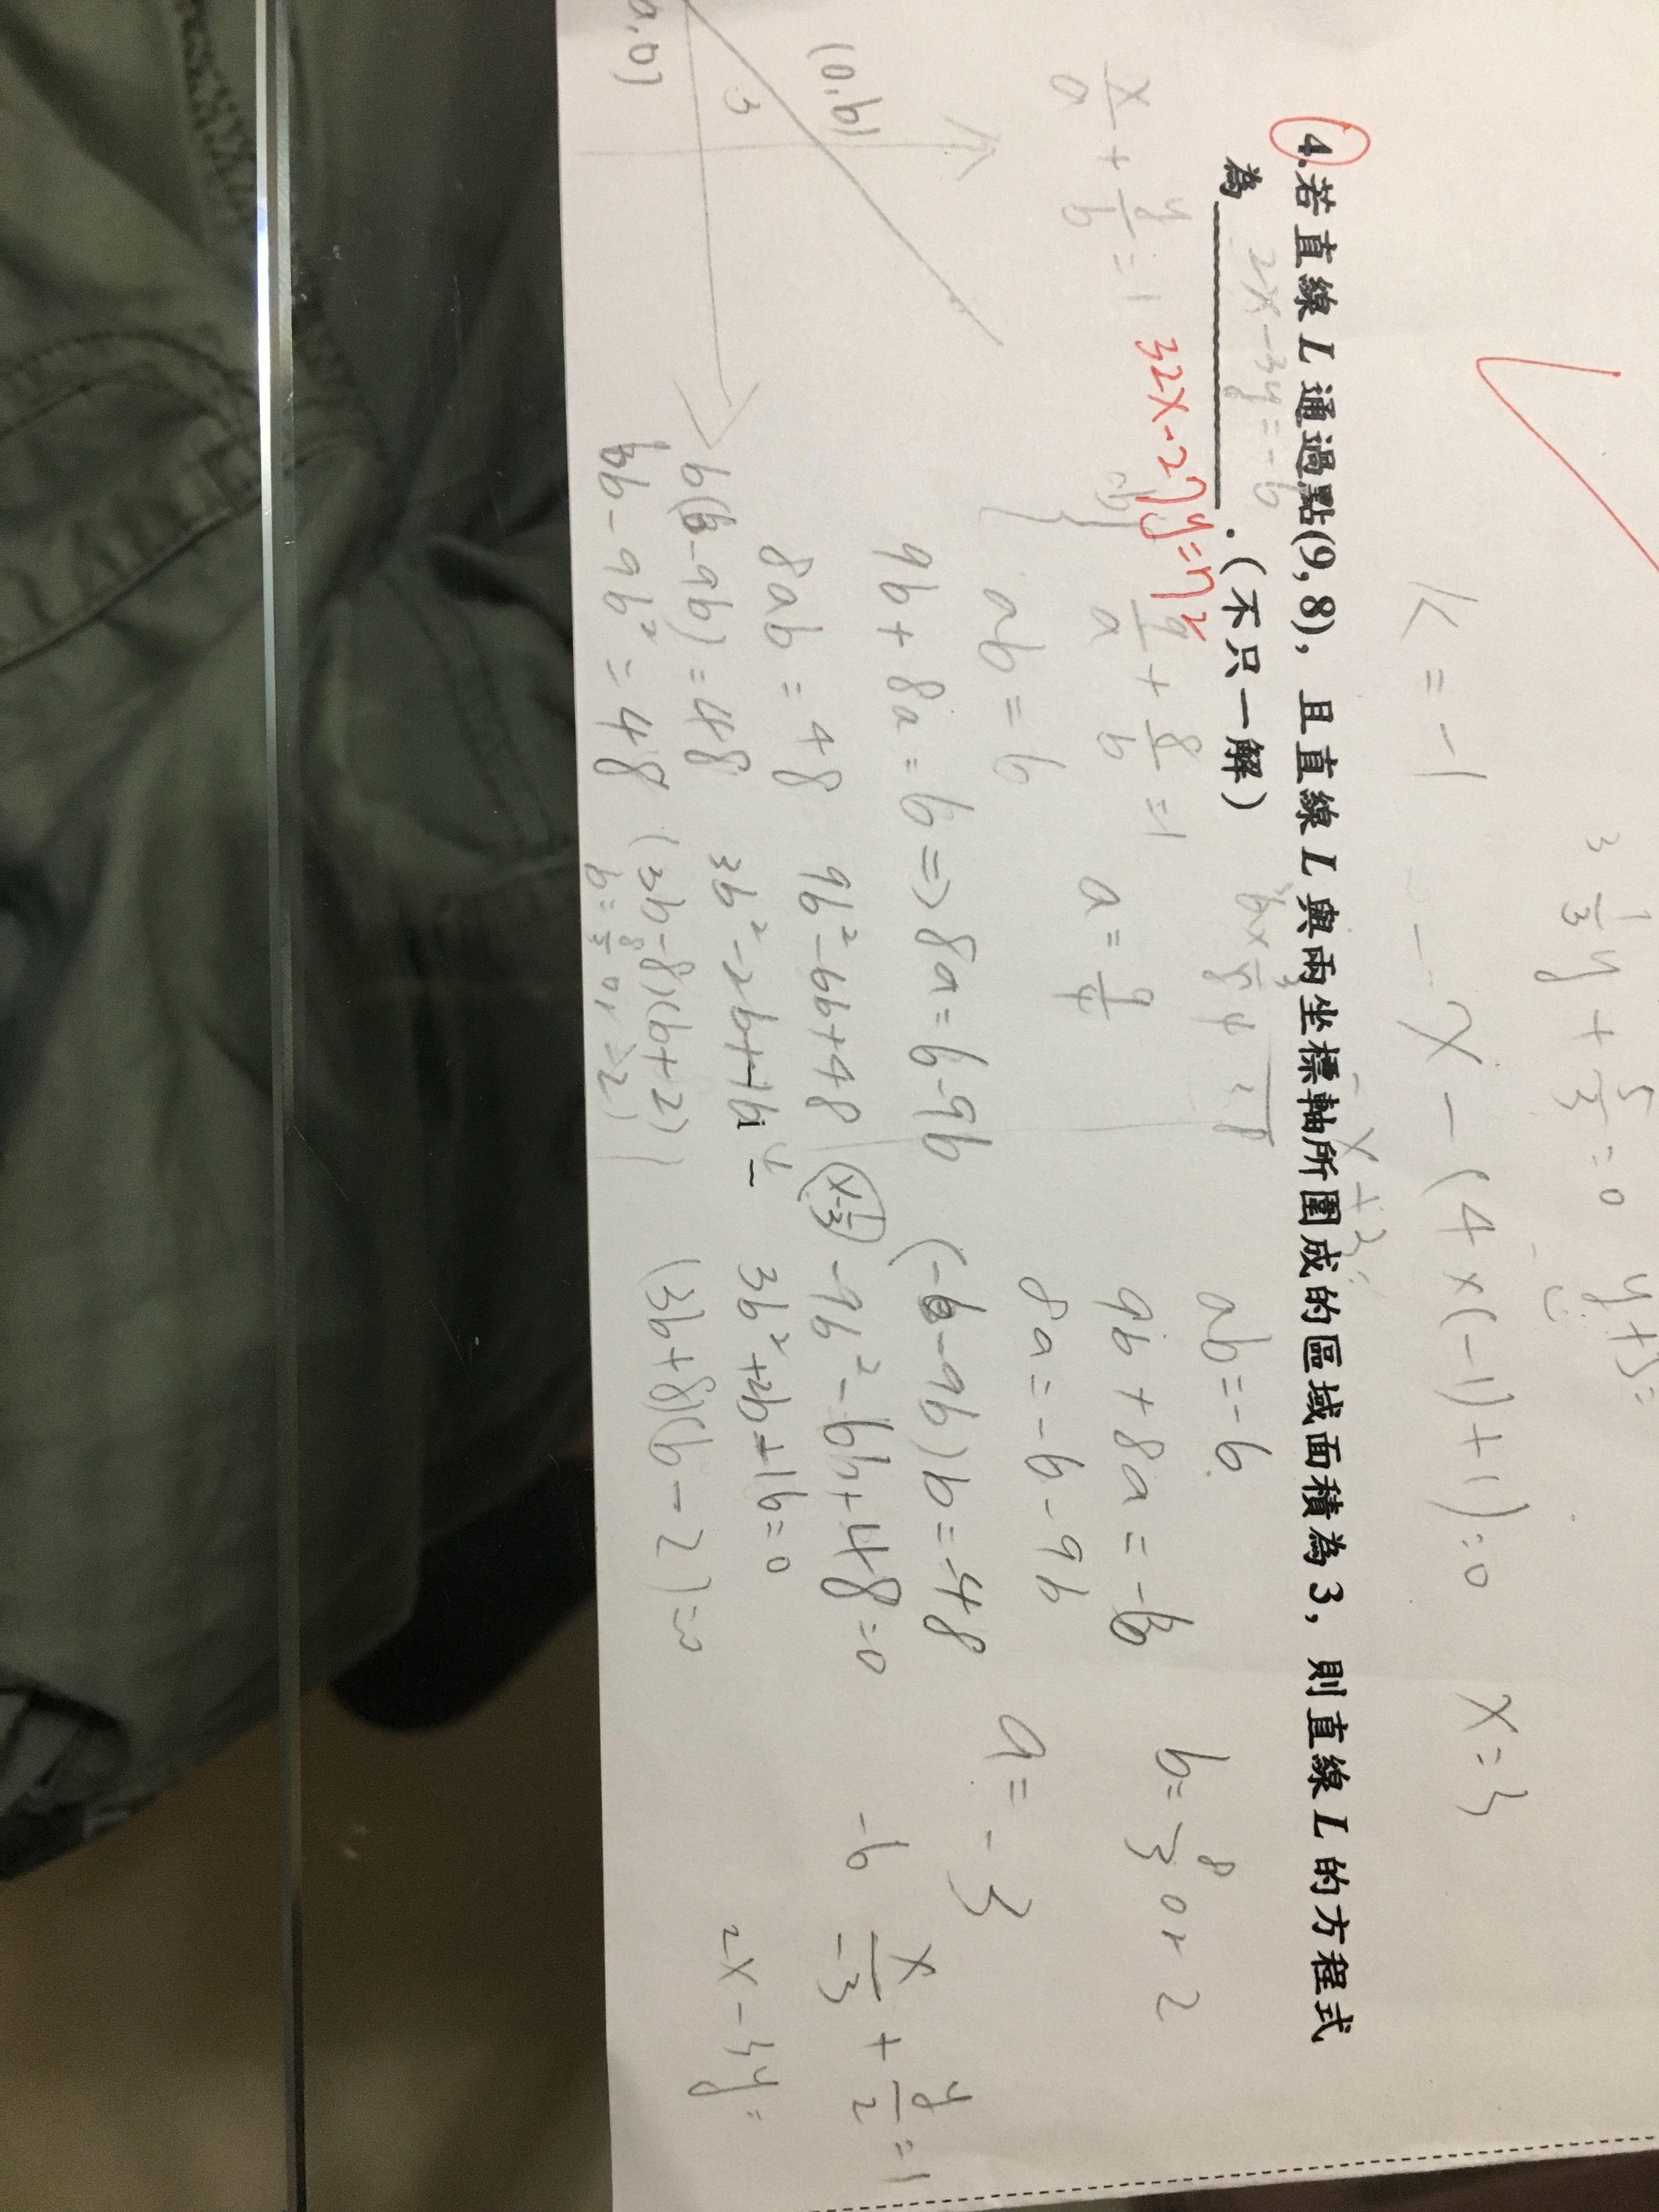 y+3=
3 1/3 y + 5/3 = 0
K = -1
x - (4×(-1)+1)=0
x=3
4.若直線 L 通過點(9,8)，且直線 L 與兩坐標軸所圍成的區域面積為 3，則直線 L 的方程式
為 2x-3y=-6 .(不只一解)
32x-27y=72
x/a + y/b = 1
9/a + 8/b = 1
a = 9/4
(0,b)
3
(a,0)
ab=6
9b+8a=6 => 8a=6-9b
8ab=48
b(6-9b)=48
6b-9b²=48
9b²-6b+48
(3b-8)(b+2)
b=8/3 or -2
ab=-6
9b+8a=-6
8a=-6-9b
(-6-9b)b=-48
-9b²-6b+48=0
3b²+2b-16=0
(3b+8)(b-2)=0
b=8/3 or 2
a=-3
-6
x/-3 + y/2 = 1
2x-3y=